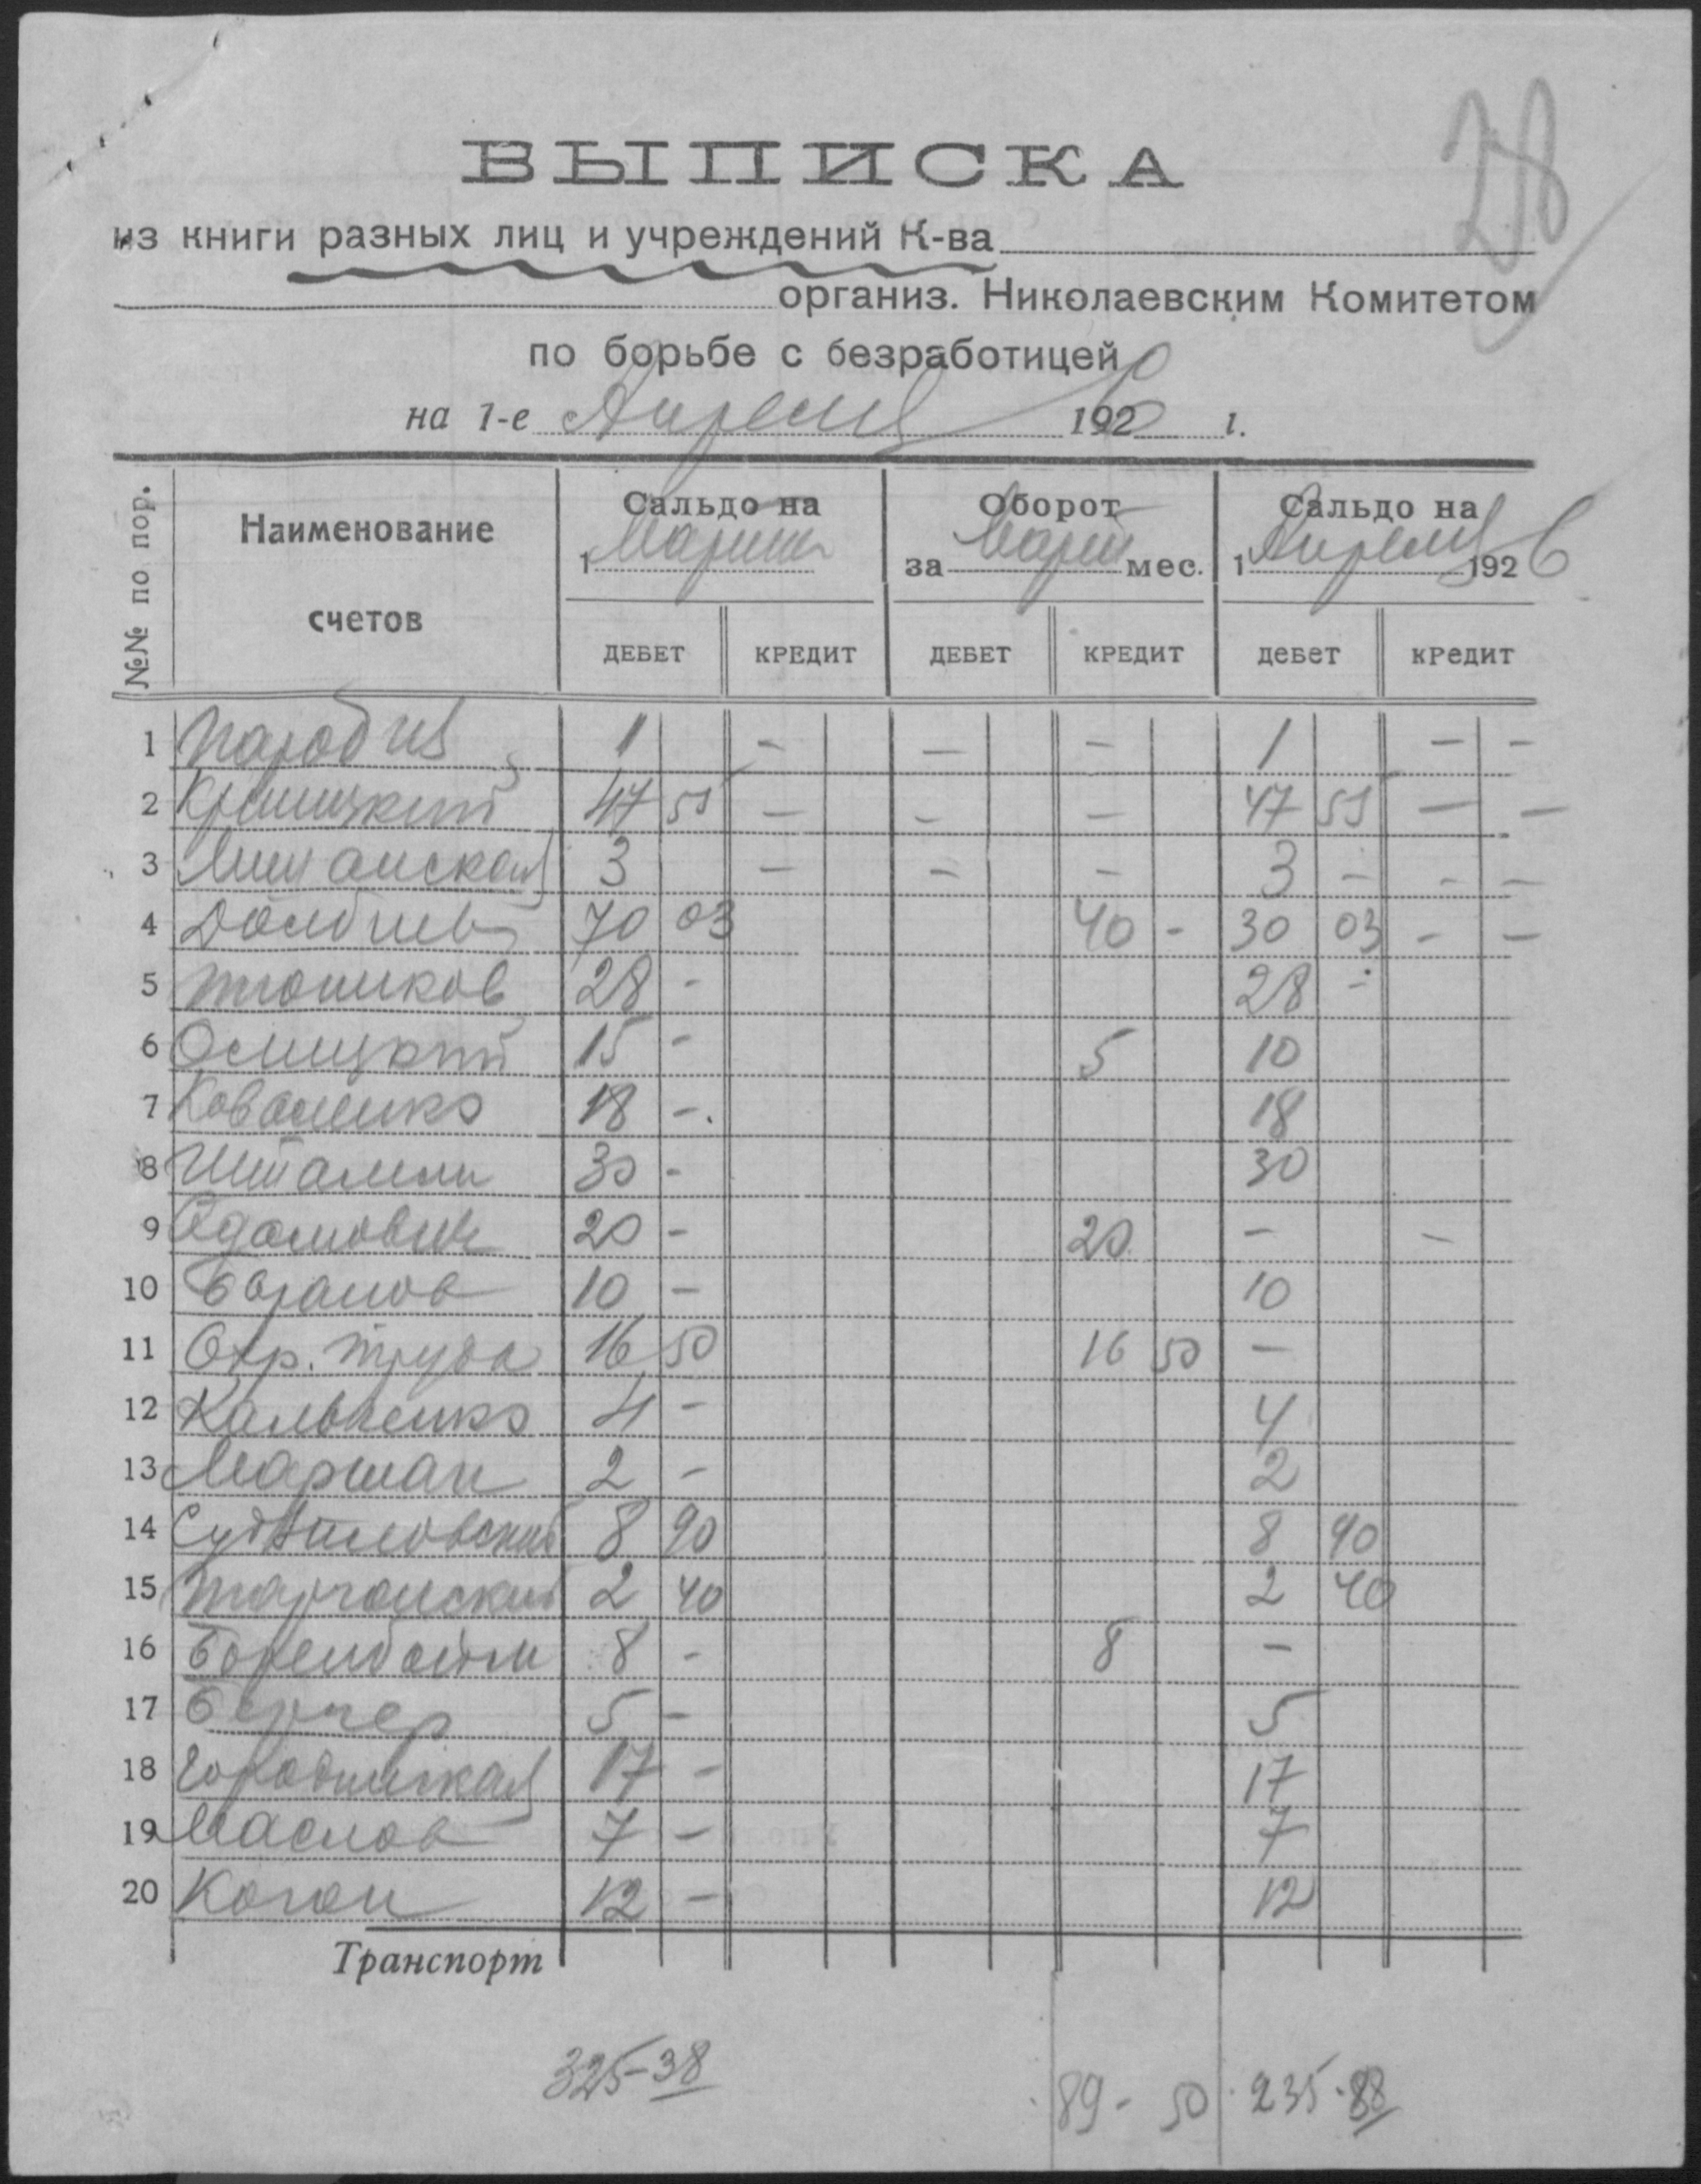 28
ВЫПИСКА
из книги разных лиц и учреждений К-ва
организ. Николаевским Комитетом
по борьбе с безработицей
на 1-е Апреля 1926 г.
№№ по пор. Наименование счетов Сальдо на 1 Марта Оборот за Март мес. Сальдо на 1 Апреля 1926
ДЕБЕТ КРЕДИТ ДЕБЕТ КРЕДИТ ДЕБЕТ КРЕДИТ
1 1 - - - 1 - -
2 Криницкий 47 55 - - - 47 55 - -
3 3 - - - 3 - - -
4 70 03 40 - 30 03 - -
5 28 - 28 -
6 Осницкий 15 - 5 10
7 Коваленко 18 - 18
8 30 - 30
9 Адамович 20 - 20 - -
10 10 - 10
11 Охр. труда 16 50 16 50 -
12 4 - 4
13 Маршак 2 - 2
14 8 90 8 90
15 2 40 2 40
16 8 - 8 -
17 Бергер 5 - 5
18 Городницкая 17 - 17
19 Маслов 7 - 7
20 Коган 12 - 12
Транспорт
325-38 89-50 235-88